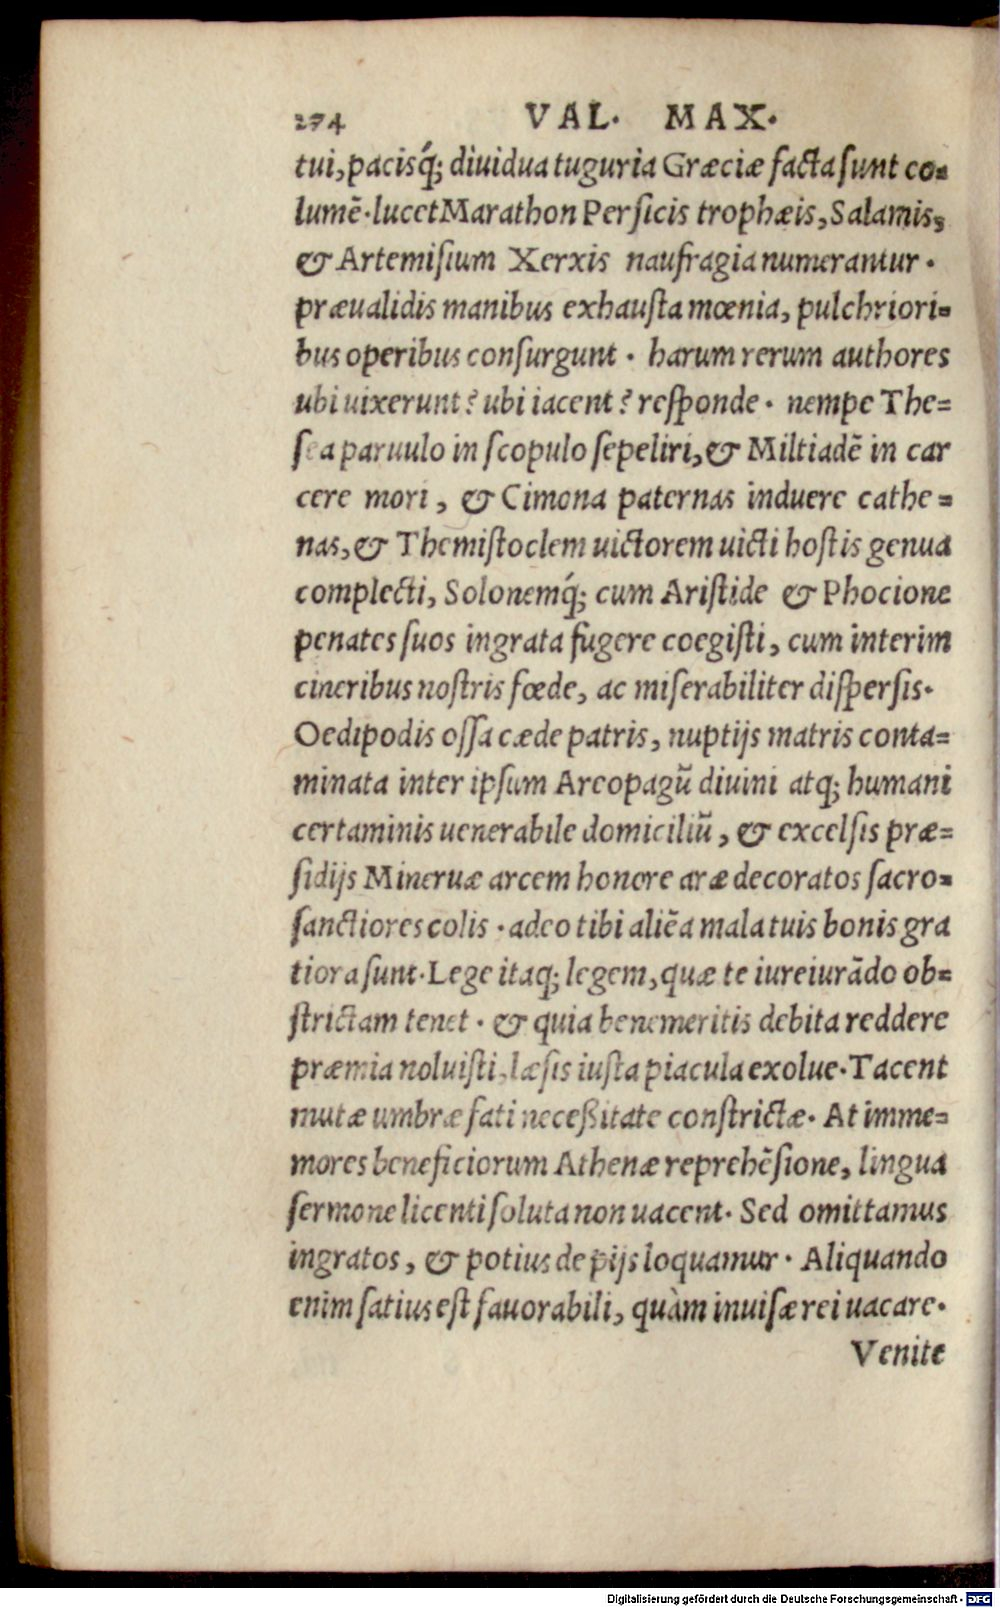 274 VAL. MAX.
tui, pacisq́; diuidua tuguria Græciæ facta sunt co-
lumē. lucet Marathon Persicis trophæis, Salamis,
& Artemisium Xerxis naufragia numerantur.
præualidis manibus exhausta mœnia, pulchriori-
bus operibus consurgunt. harum rerum authores
ubi uixerunt? ubi iacent? responde. nempe The-
sea paruulo in scopulo sepeliri, & Miltiadē in car
cere mori, & Cimona paternas induere cathe-
nas, & Themistoclem uictorem uicti hostis genua
complecti, Solonemq́; cum Aristide & Phocione
penates suos ingrata fugere coegisti, cum interim
cineribus nostris fœde, ac miserabiliter dispersis.
Oedipodis ossa cæde patris, nuptijs matris conta-
minata inter ipsum Areopagū diuini atq; humani
certaminis uenerabile domiciliū, & excelsis præ-
sidijs Mineruæ arcem honore aræ decoratos sacro-
sanctiores colis. adeo tibi aliēa mala tuis bonis gra
tiora sunt. Lege itaq; legem, quæ te iureiurādo ob-
strictam tenet. & quia benemeritis debita reddere
præmia noluisti, læsis iusta piacula exolue. Tacent
mutæ umbræ fati neceßitate constrictæ. At imme-
mores beneficiorum Athenæ reprehēsione, lingua
sermone licenti soluta non uacent. Sed omittamus
ingratos, & potius de pijs loquamur. Aliquando
enim satius est fauorabili, quàm inuisæ rei uacare.
Venite
Digitalisierung gefördert durch die Deutsche Forschungsgemeinschaft - DFG